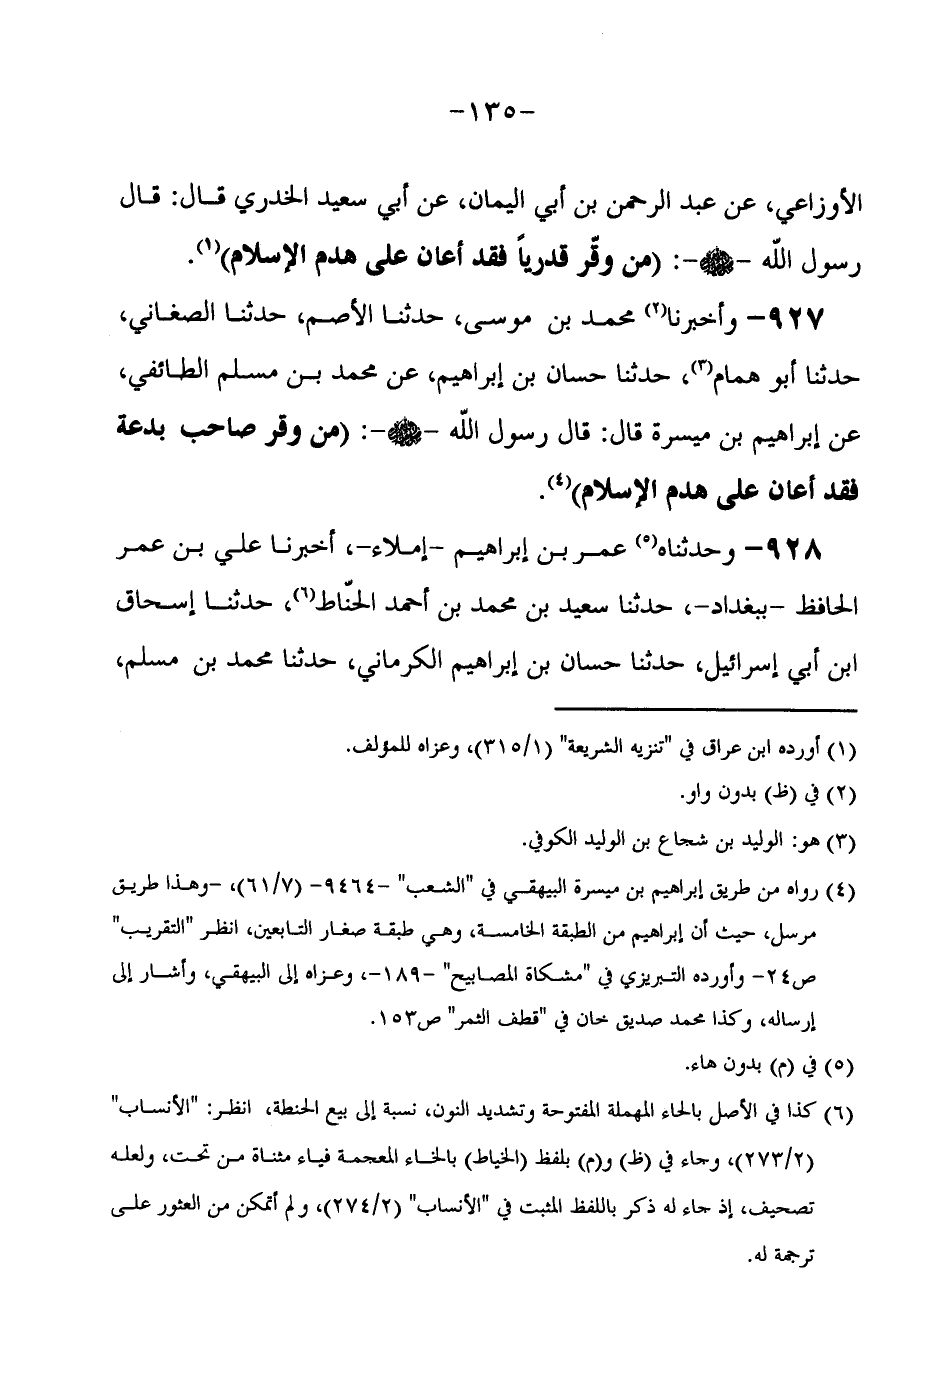 -١٣٥-
الأوزاعي، عن عبد الرحمن بن أبي اليمان، عن أبي سعيد الخدري قال: قال
رسول اللّه -ﷺ-: (من وقّر قدرياً فقد أعان على هدم الإسلام)(١).
٩٢٧- وأخبرنا(٢) محمد بن موسى، حدثنا الأصم، حدثنا الصغاني،
حدثنا أبو همام(٣)، حدثنا حسان بن إبراهيم، عن محمد بن مسلم الطائفي،
عن إبراهيم بن ميسرة قال: قال رسول اللّه -ﷺ-: (من وقر صاحب بدعة
فقد أعان على هدم الإسلام)(٤).
٩٢٨- وحدثناه(٥) عمر بن إبراهيم -إملاء-، أخبرنا علي بن عمر
الحافظ -ببغداد-، حدثنا سعيد بن محمد بن أحمد الحنّاط(٦)، حدثنا إسحاق
ابن أبي إسرائيل، حدثنا حسان بن إبراهيم الكرماني، حدثنا محمد بن مسلم،
(١) أورده ابن عراق في "تنزيه الشريعة" (٣١٥/١)، وعزاه للمؤلف.
(٢) في (ظ) بدون واو.
(٣) هو: الوليد بن شجاع بن الوليد الكوفي.
(٤) رواه من طريق إبراهيم بن ميسرة البيهقي في "الشعب" -٩٤٦٤- (٦١/٧)، -وهذا طريق
مرسل، حيث أن إبراهيم من الطبقة الخامسة، وهي طبقة صغار التابعين، انظر "التقريب"
ص٢٤- وأورده التبريزي في "مشكاة المصابيح" -١٨٩-، وعزاه إلى البيهقي، وأشار إلى
إرساله، وكذا محمد صديق خان في "قطف الثمر" ص١٥٣.
(٥) في (م) بدون هاء.
(٦) كذا في الأصل بالحاء المهملة المفتوحة وتشديد النون، نسبة إلى بيع الحنطة، انظر: "الأنساب"
(٢٧٣/٢)، وجاء في (ظ) و(م) بلفظ (الخياط) بالخاء المعجمة فياء مثناة من تحت، ولعله
تصحيف، إذ جاء له ذكر باللفظ المثبت في "الأنساب" (٢٧٤/٢)، ولم أتمكن من العثور على
ترجمة له.